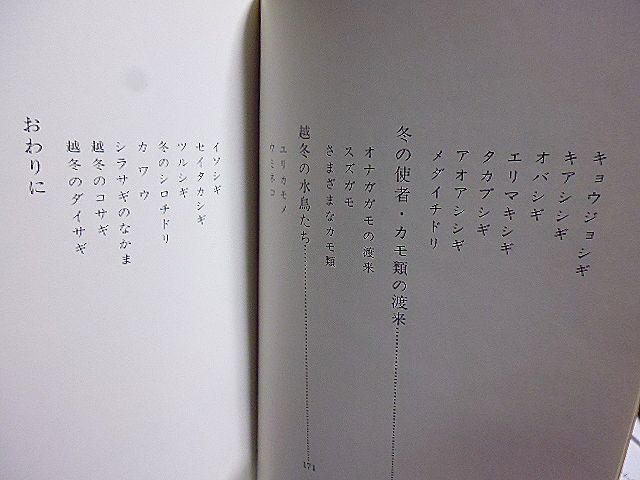 キョウジョシギ
キアシシギ
オバシギ
エリマキシギ
タカブシギ
アオアシシギ
メダイチドリ
冬の使者・カモ類の渡来
オナガガモの渡来
スズガモ
さまざまなカモ類
越冬の水鳥たち
171
ユリカモメ
ウミネコ
イソシギ
セイタカシギ
ツルシギ
冬のシロチドリ
カワウ
シラサギのなかま
越冬のコサギ
越冬のダイサギ
おわりに